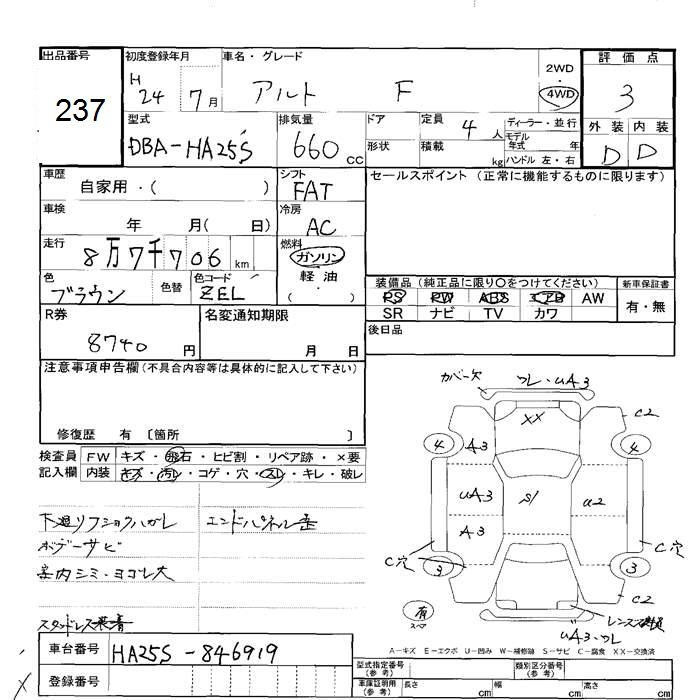 出品番号
237
初度登録年月
H 24 7月
車名・グレード
アルト F
2WD・4WD
評価点
3
外装 内装
D D
型式
DBA-HA25S
排気量
660 cc
ドア
形状
定員 4 人
積載 kg
ディーラー・並行
モデル年式 年
ハンドル 左・右
車歴
自家用・( )
シフト
FAT
セールスポイント(正常に機能するものに限ります)
車検
年 月( 日)
冷房
AC
走行
8万7千706 km
燃料
ガソリン・軽油
( )
色
ブラウン
色替
色コード
ZEL
装備品(純正品に限り〇をつけてください)
PS PW ABS エアB AW
SR ナビ TV カワ
新車保証書
有・無
R券
8740 円
名変通知期限
月 日
後日品
注意事項申告欄(不具合内容等は具体的に記入して下さい)
修復歴 有 〔箇所 〕
検査員記入欄
FW キズ・飛石・ヒビ割・リペア跡・×要
内装 キズ・汚レ・コゲ・穴・スレ・キレ・破レ
下廻リフショクハガレ エンドパネル歪
ボデーサビ
室内シミ・ヨゴレ大
スタッドレス装着
車台番号
HA25S-846919
登録番号
カバー欠
ワレ・UA3
XX
C2
4
4
A3
UA3
S/
U2
A3
C穴
C穴
3
3
C2
有
スペア
UA3・ワレ
A-キズ E-エクボ U-凹み W-補修跡 S-サビ C-腐食 XX-交換済
型式指定番号(参考)
類別区分番号(参考)
車庫証明用(参考) 長さ cm 幅 cm 高さ cm